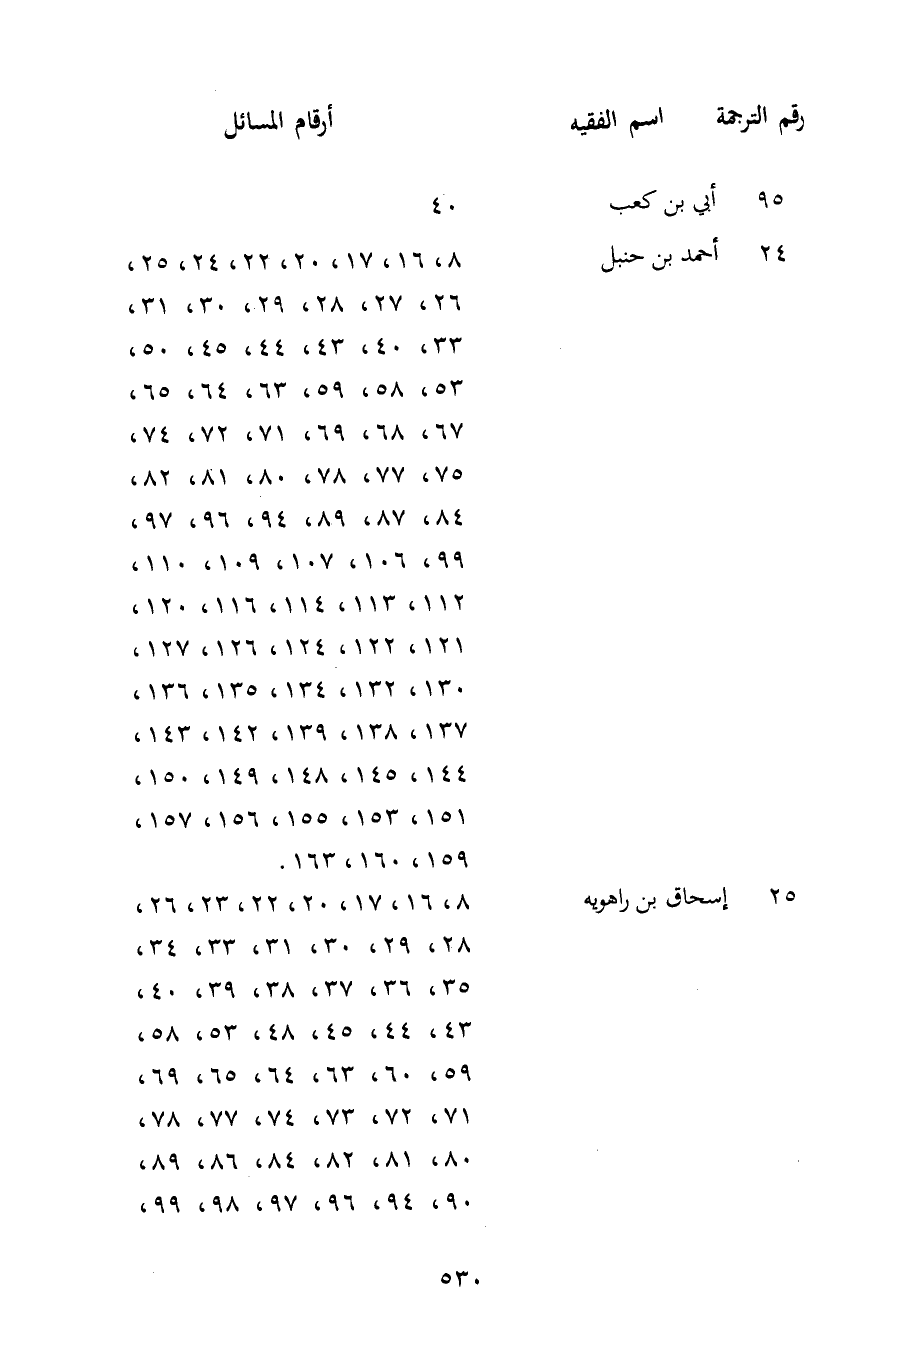 رقم الترجمة اسم الفقيه أرقام المسائل
٩٥ أبي بن كعب ٤٠
٢٤ أحمد بن حنبل ٨، ١٦، ١٧، ٢٠، ٢٢، ٢٤، ٢٥،
٢٦، ٢٧، ٢٨، ٢٩، ٣٠، ٣١،
٣٣، ٤٠، ٤٣، ٤٤، ٤٥، ٥٠،
٥٣، ٥٨، ٥٩، ٦٣، ٦٤، ٦٥،
٦٧، ٦٨، ٦٩، ٧١، ٧٢، ٧٤،
٧٥، ٧٧، ٧٨، ٨٠، ٨١، ٨٢،
٨٤، ٨٧، ٨٩، ٩٤، ٩٦، ٩٧،
٩٩، ١٠٦، ١٠٧، ١٠٩، ١١٠،
١١٢، ١١٣، ١١٤، ١١٦، ١٢٠،
١٢١، ١٢٢، ١٢٤، ١٢٦، ١٢٧،
١٣٠، ١٣٢، ١٣٤، ١٣٥، ١٣٦،
١٣٧، ١٣٨، ١٣٩، ١٤٢، ١٤٣،
١٤٤، ١٤٥، ١٤٨، ١٤٩، ١٥٠،
١٥١، ١٥٣، ١٥٥، ١٥٦، ١٥٧،
١٥٩، ١٦٠، ١٦٣.
٢٥ إسحاق بن راهويه ٨، ١٦، ١٧، ٢٠، ٢٢، ٢٣، ٢٦،
٢٨، ٢٩، ٣٠، ٣١، ٣٣، ٣٤،
٣٥، ٣٦، ٣٧، ٣٨، ٣٩، ٤٠،
٤٣، ٤٤، ٤٥، ٤٨، ٥٣، ٥٨،
٥٩، ٦٠، ٦٣، ٦٤، ٦٥، ٦٩،
٧١، ٧٢، ٧٣، ٧٤، ٧٧، ٧٨،
٨٠، ٨١، ٨٢، ٨٤، ٨٦، ٨٩،
٩٠، ٩٤، ٩٦، ٩٧، ٩٨، ٩٩،
٥٣٠